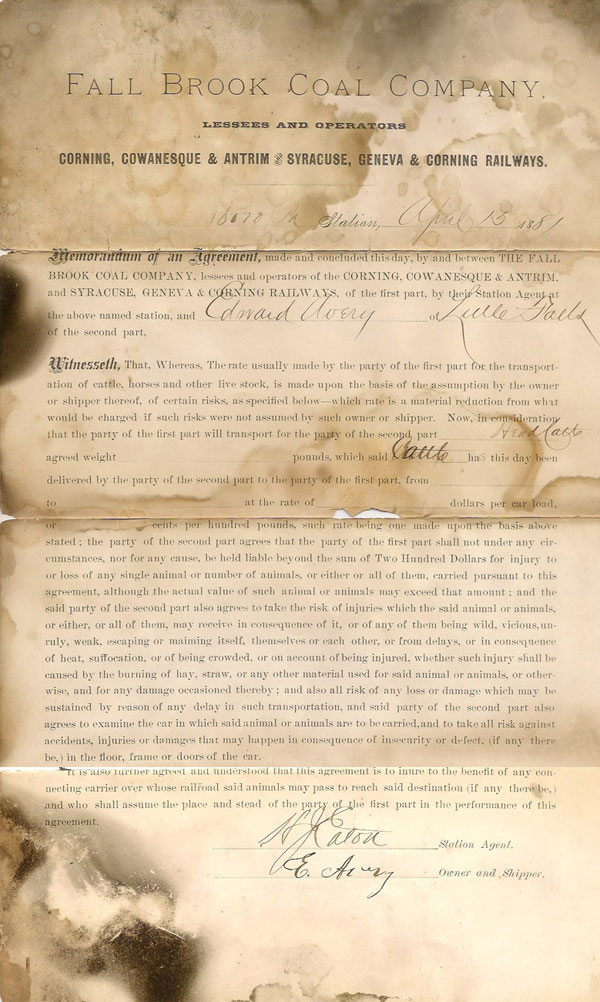 FALL BROOK COAL COMPANY.
LESSEES AND OPERATORS
CORNING, COWANESQUE & ANTRIM AND SYRACUSE, GENEVA & CORNING RAILWAYS.
Station, April 13 1881
Memorandum of an Agreement, made and concluded this day, by and between THE FALL
BROOK COAL COMPANY, lessees and operators of the CORNING, COWANESQUE & ANTRIM,
and SYRACUSE, GENEVA & CORNING RAILWAYS, of the first part, by their Station Agent at
the above named station, and Edward Avery of Little Falls
of the second part,
Witnesseth, That, Whereas, The rate usually made by the party of the first part for the transport-
ation of cattle, horses and other live stock, is made upon the basis of the assumption by the owner
or shipper thereof, of certain risks, as specified below—which rate is a material reduction from what
would be charged if such risks were not assumed by such owner or shipper. Now, in consideration
that the party of the first part will transport for the party of the second part Head Cattle
agreed weight pounds, which said Cattle has this day been
delivered by the party of the second part to the party of the first part, from
to at the rate of dollars per car load,
or cents per hundred pounds, such rate being one made upon the basis above
stated; the party of the second part agrees that the party of the first part shall not under any cir-
cumstances, nor for any cause, be held liable beyond the sum of Two Hundred Dollars for injury to
or loss of any single animal or number of animals, or either or all of them, carried pursuant to this
agreement, although the actual value of such animal or animals may exceed that amount; and the
said party of the second part also agrees to take the risk of injuries which the said animal or animals,
or either, or all of them, may receive in consequence of it, or of any of them being wild, vicious, un-
ruly, weak, escaping or maiming itself, themselves or each other, or from delays, or in consequence
of heat, suffocation, or of being crowded, or on account of being injured, whether such injury shall be
caused by the burning of hay, straw, or any other material used for said animal or animals, or other-
wise, and for any damage occasioned thereby; and also all risk of any loss or damage which may be
sustained by reason of any delay in such transportation, and said party of the second part also
agrees to examine the car in which said animal or animals are to be carried, and to take all risk against
accidents, injuries or damages that may happen in consequence of insecurity or defect, (if any there
be,) in the floor, frame or doors of the car.
It is also further agreed and understood that this agreement is to inure to the benefit of any con-
necting carrier over whose railroad said animals may pass to reach said destination (if any there be,)
and who shall assume the place and stead of the party of the first part in the performance of this
agreement.
H J Eaton Station Agent.
E. Avery Owner and Shipper.